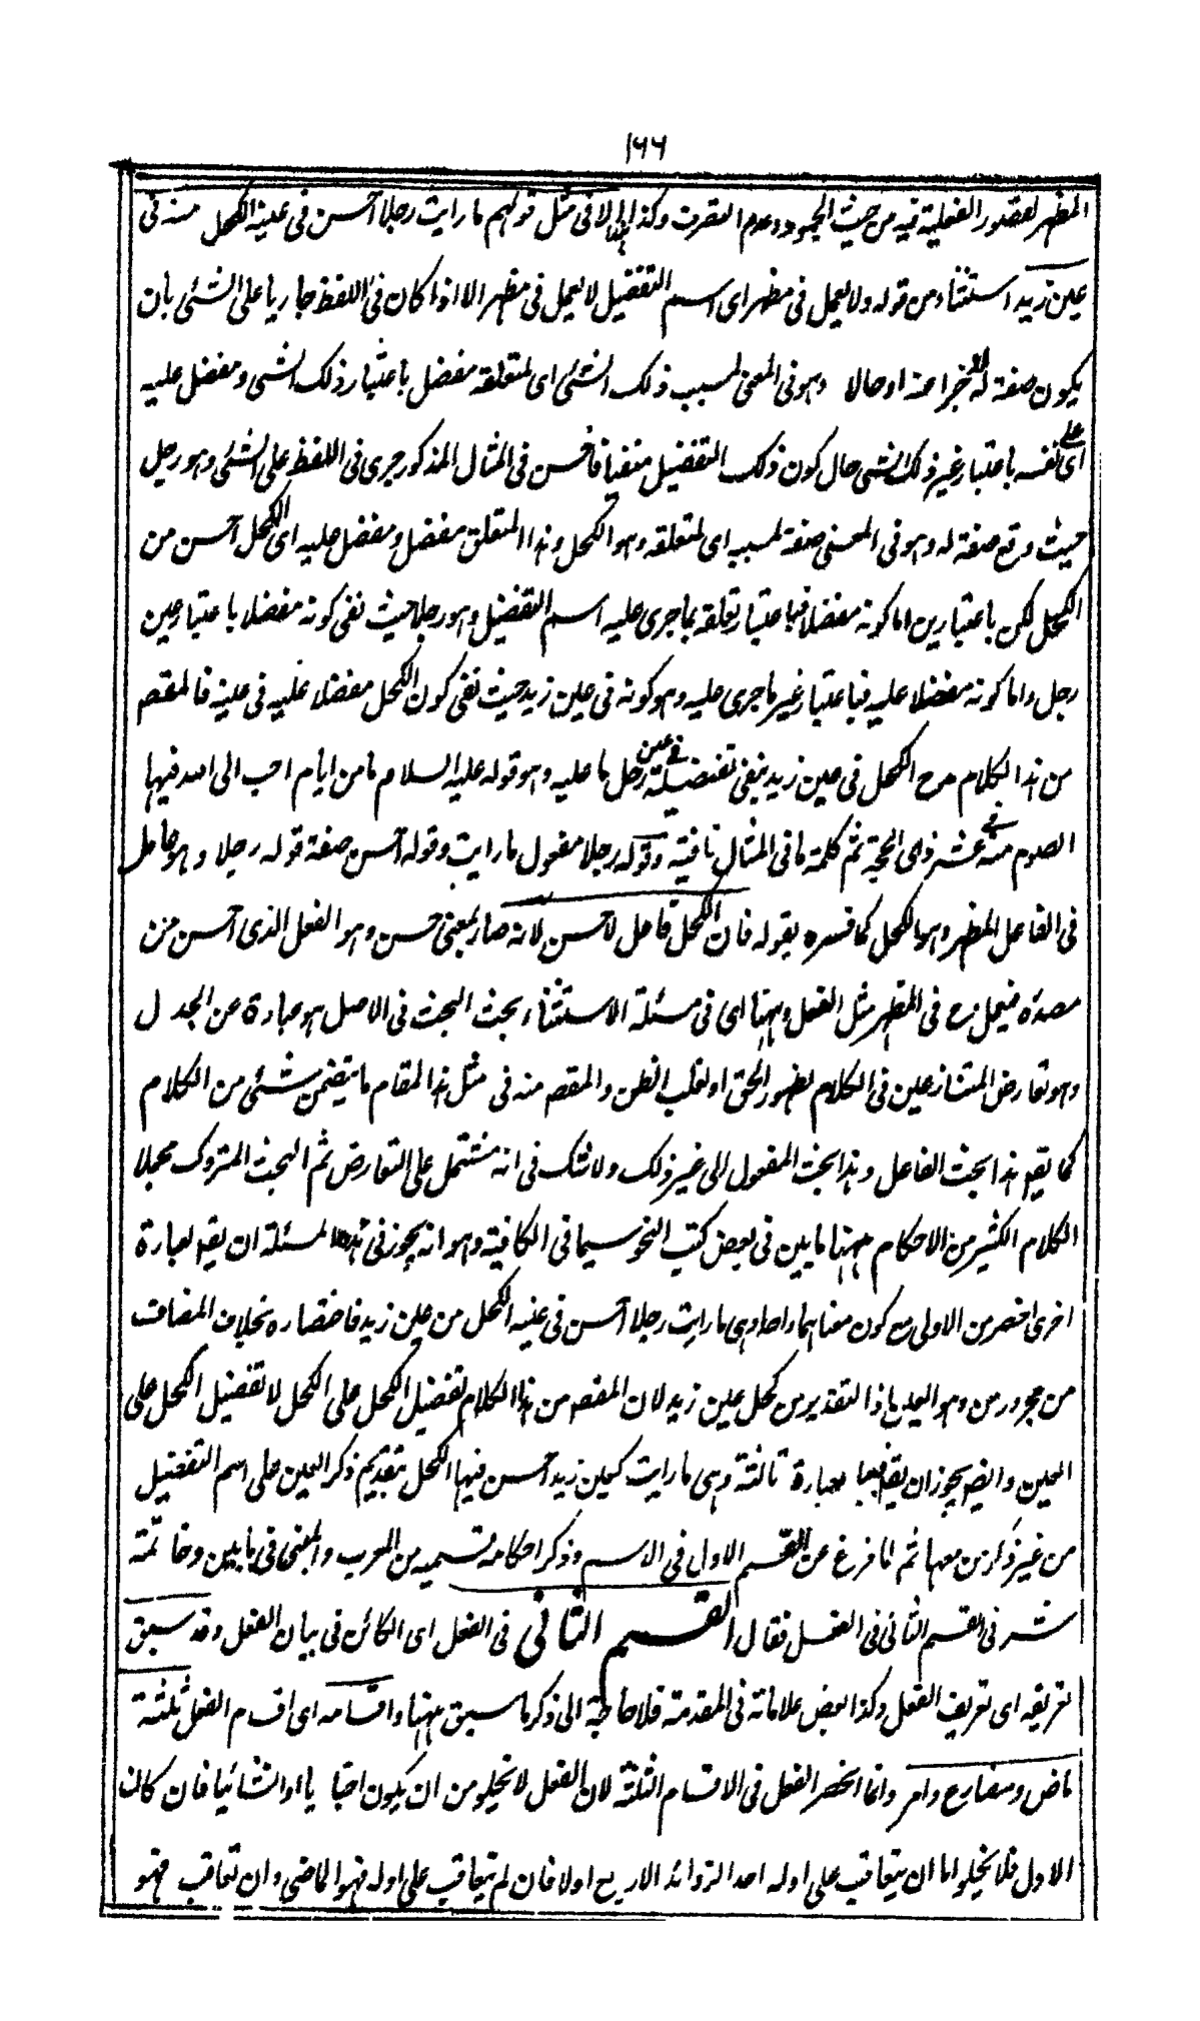 ۱۶۶
المظهر لقصور الفعلية فيه من حيث الجمود وعدم التصرف وكذا الا فى مثل قولهم ما رايت رجلا احسن فى عينه الكحل منه فى
عين زيد استثناء من قوله ولا يعمل فى مظهر اى اسم التفضيل لا يعمل فى مظهر الا اذا كان فى اللفظ جاريا على الشئ بان
يكون صفة له او خبرا عنه او حالا وهو فى المعنى لمسبب ذلك الشئ اى لمتعلقه مفضل باعتبار ذلك الشئ ومفضل عليه
اى على نفسه باعتبار غير ذلك الشئ حال كون ذلك التفضيل منفيا فاحسن فى المثال المذكور جرى فى اللفظ على الشئ وهو رجل
حيث وقع صفة له وهو فى المعنى صفة لمسببه اى لمتعلقه وهو الكحل وهذا المتعلق مفضل ومفضل عليه اى الكحل احسن من
الكحل لكن باعتبارين اما كونه مفضلا فباعتبار تعلقه بما جرى عليه اسم التفضيل وهو رجلا حيث نفى كونه مفضلا باعتبار عين
رجل واما كونه مفضلا عليه فباعتبار غير ما جرى عليه وهو كونه فى عين زيد حيث نفى كون الكحل مفضلا عليه فى عينه فالمقصـ
من هذا الكلام مدح الكحل فى عين زيد بنفى تفضيله فى عين رجل ما عليه وهو قوله عليه السلام ما من ايام احب الى الله فيها
الصوم منه فى عشر ذى الحجة ثم كلمة ما فى المثال نافية وقوله رجلا مفعول ما رايت وقوله احسن صفة قوله رجلا وهو عامل
فى الفاعل المظهر وهو الكحل كما فسره بقوله فان الكحل فاعل لاحسن لانه صار بمعنى حسن وهو الفعل الذى احسن من
مصدره فيعمل مع فى المظهر مثل الفعل وههنا اى فى مسئلة الاستثناء بحث البحث فى الاصل هو عبارة عن الجدل
وهو تعارض المتنازعين فى الكلام لظهور الحق او لغلب الظن والمقصـ منه فى مثل هذا المقام ما يتضمن شئ من الكلام
كما يقـ هذا بحث الفاعل وهذا بحث المفعول الى غير ذلك ولا شك فى انه مشتمل على التعارض ثم البحث المتروك مجملا
الكلام الكثير من الاحكام ههنا ما يبين فى بعض كتب النحو سيما فى الكافية وهو انه يجوز فى هذه المسئلة ان يقـ لعبارة
اخرى اخصر من الاولى مع كون معناهما واحدا وهى ما رايت رجلا احسن فى عينه الكحل من عين زيد فاختصاره بخلاف المضاف
من مجرور من وهو العين اذ التقدير من كحل عين زيد لان المقصـ من هذا الكلام تفضيل الكحل على الكحل لا تفضيل الكحل على
العين وايضـ يجوز ان يقـ فيها عبارة ثالثة وهى ما رايت كعين زيد احسن فيها الكحل بتقديم ذكر العين على اسم التفضيل
من غير ذكر من معها ثم لما فرغ عن القسم الاول فى الاسم وذكر احكامه قسميه من المعرب والمبنى فى بابين وخاتمة
شرع فى القسم الثانى فى الفعل فقال القسم الثانى فى الفعل اى الكائن فى بيان الفعل وقد سبق
تعريفه اى تعريف الفعل وكذا بعض علاماته فى المقدمة فلا حاجة الى ذكر ما سبق ههنا واقسامه اى اقسام الفعل ثلثة
ماض ومضارع وامر وانما انحصر الفعل فى الاقسام الثلثة لان الفعل لا يخلو من ان يكون اخباريا او انشائيا فان كان
الاول فلا يخلو اما ان يتعاقب على اوله احد الزوائد الاربع اولا فان لم يتعاقب على اوله فهو الماضى وان تعاقب فهو